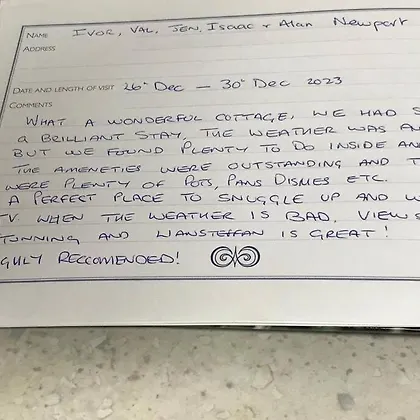 NAME IVOR, VAL, JEN, ISAAC + Alan Newport
ADDRESS
DATE AND LENGTH OF VISIT 26th Dec — 30th Dec 2023
COMMENTS
WHAT A WONDERFUL COTTAGE, WE HAD
a BRILLIANT STAY, THE WEATHER WAS
BUT WE FOUND PLENTY TO DO INSIDE AN
THE AMENETIES WERE OUTSTANDING AND T
WERE PLENTY OF POTS, PANS DISHES ETC.
A PERFECT PLACE TO SNUGGLE UP AND W
TV WHEN THE WEATHER IS BAD. VIEWS
TUNNING AND LLANSTEFFAN IS GREAT!
GHLY RECCOMENDED!